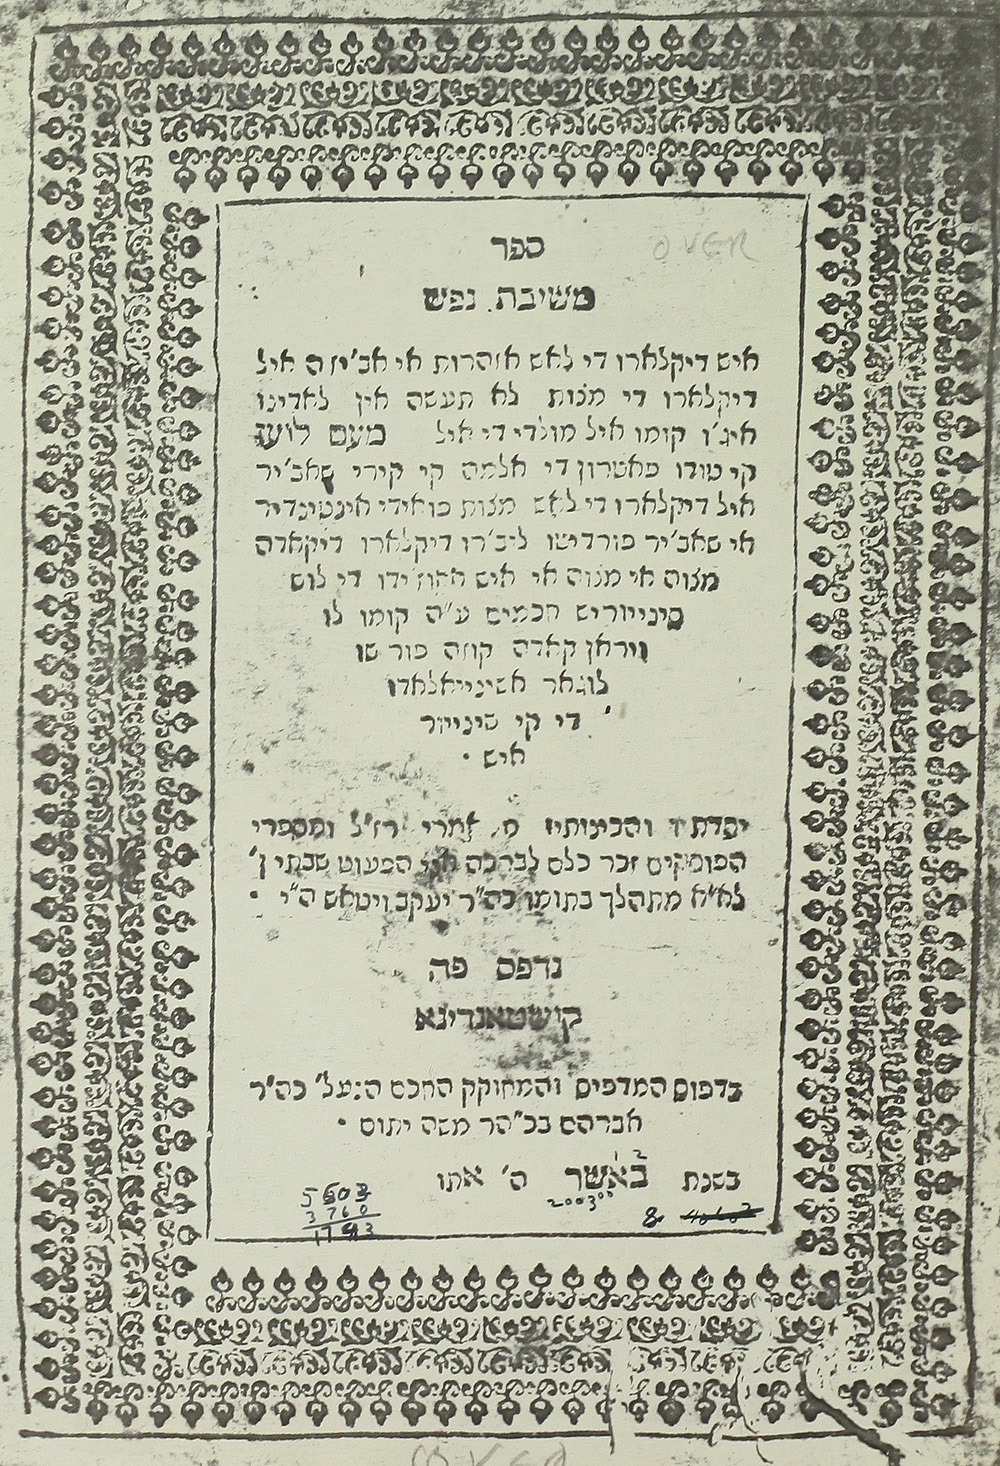 ספר
OVER
משיבת נפש
איש דיקלארו די לאש אזהרות אי אב'יזה איל
דיקלארו די מצות לא תעשה אין לאדינו
איג'ו קומו איל מולדי די איל מעם לועז
קי טודו פאטרון די אלמה קי קירי שאב'יר
איל דיקלארו די לאש מצות פואידי אינטינדיר
אי שאב'יר פורדישו ליב'רו דיקלארו דיקאדה
מצוה אי מצוה אי איש די לוש
סינייוריש חכמים ע"ה קומו לו
ויראן קאדה קוזה פור שו
לוגאר אשינייאלאדו
די קי שינייור
איש
יסדתיו והכינותיו אמרי רז"ל ומספרי
הפוסקים זכר כלם לברכה אני הפעוט שבתי ן'
לא"א מתהלך בתומו כה"ר יעקב ויטאש ה"י
נדפס פה
קושטאנדינא
בדפוס המדפיס והמחוקק החכם הנעל' כה"ר
אברהם בכ"הר משה יתום
בשנת באשר ה' אתו
2003
8
5503
3760
1743